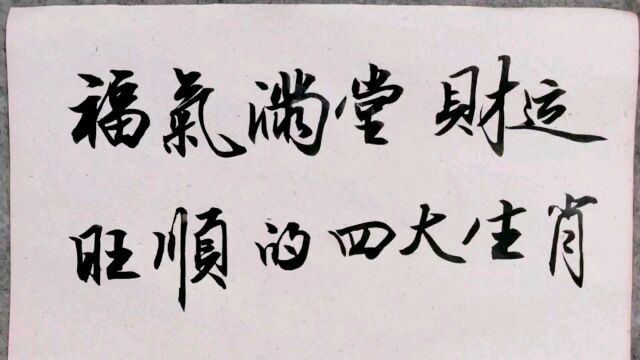 福氣满堂 財运
旺順的四大生肖